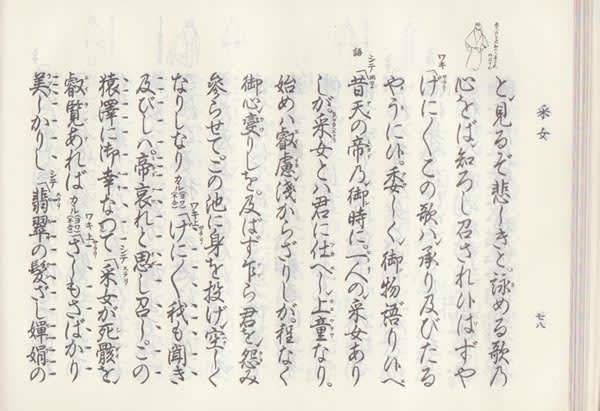 采女
七八
と見るぞ悲しきと。詠める歌乃
心をば。知ろし召されひはずや
ワキ「げに〱この歌ハ承り及びたる
やうにひ。委しく御物語りひへ
語 シテ「昔天の帝乃御時に。一人の采女あり
しが。采女とハ君に仕へし上童なり。
始めハ叡慮淺からざりしが。程なく
御心變りしを。及ばず乍ら君を怨み
參らせて。この池に身を投げ空しく
なりしなり ワキ上「げに〱我も聞き
及びしハ。帝哀れと思し召し。この
猿澤に御幸なつて シテ「采女が死骸を。
叡覧あれば ワキ上「さしもさばかり
美しかりし シテ「翡翠の髮ざし嬋娟の